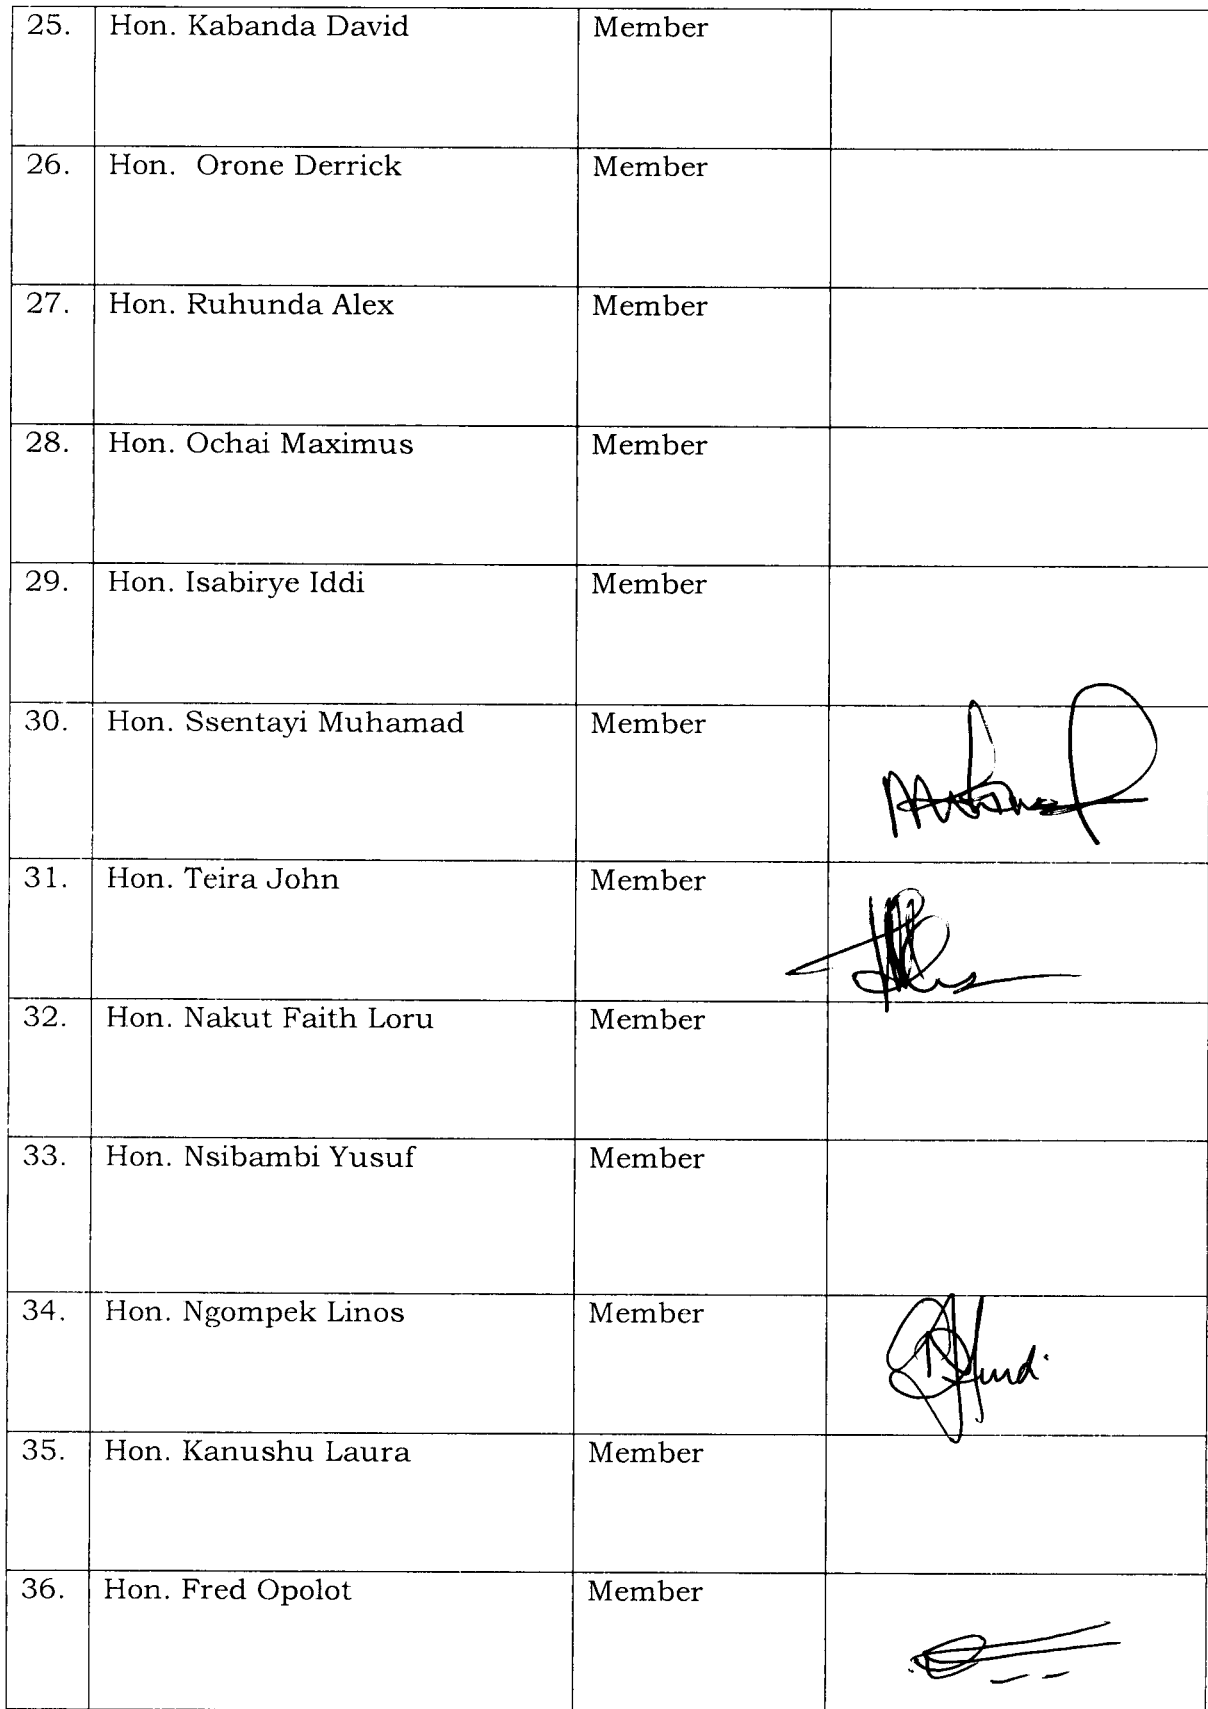 25. Hon. Kabanda David Member
26. Hon. Orone Derrick Member
27. Hon. Ruhunda Alex Member
28. Hon. Ochai Maximus Member
29. Hon. Isabirye Iddi Member
30. Hon. Ssentayi Muhamad Member
31. Hon. Teira John Member
32. Hon. Nakut Faith Loru Member
33. Hon. Nsibambi Yusuf Member
34. Hon. Ngompek Linos Member
35. Hon. Kanushu Laura Member
36. Hon. Fred Opolot Member